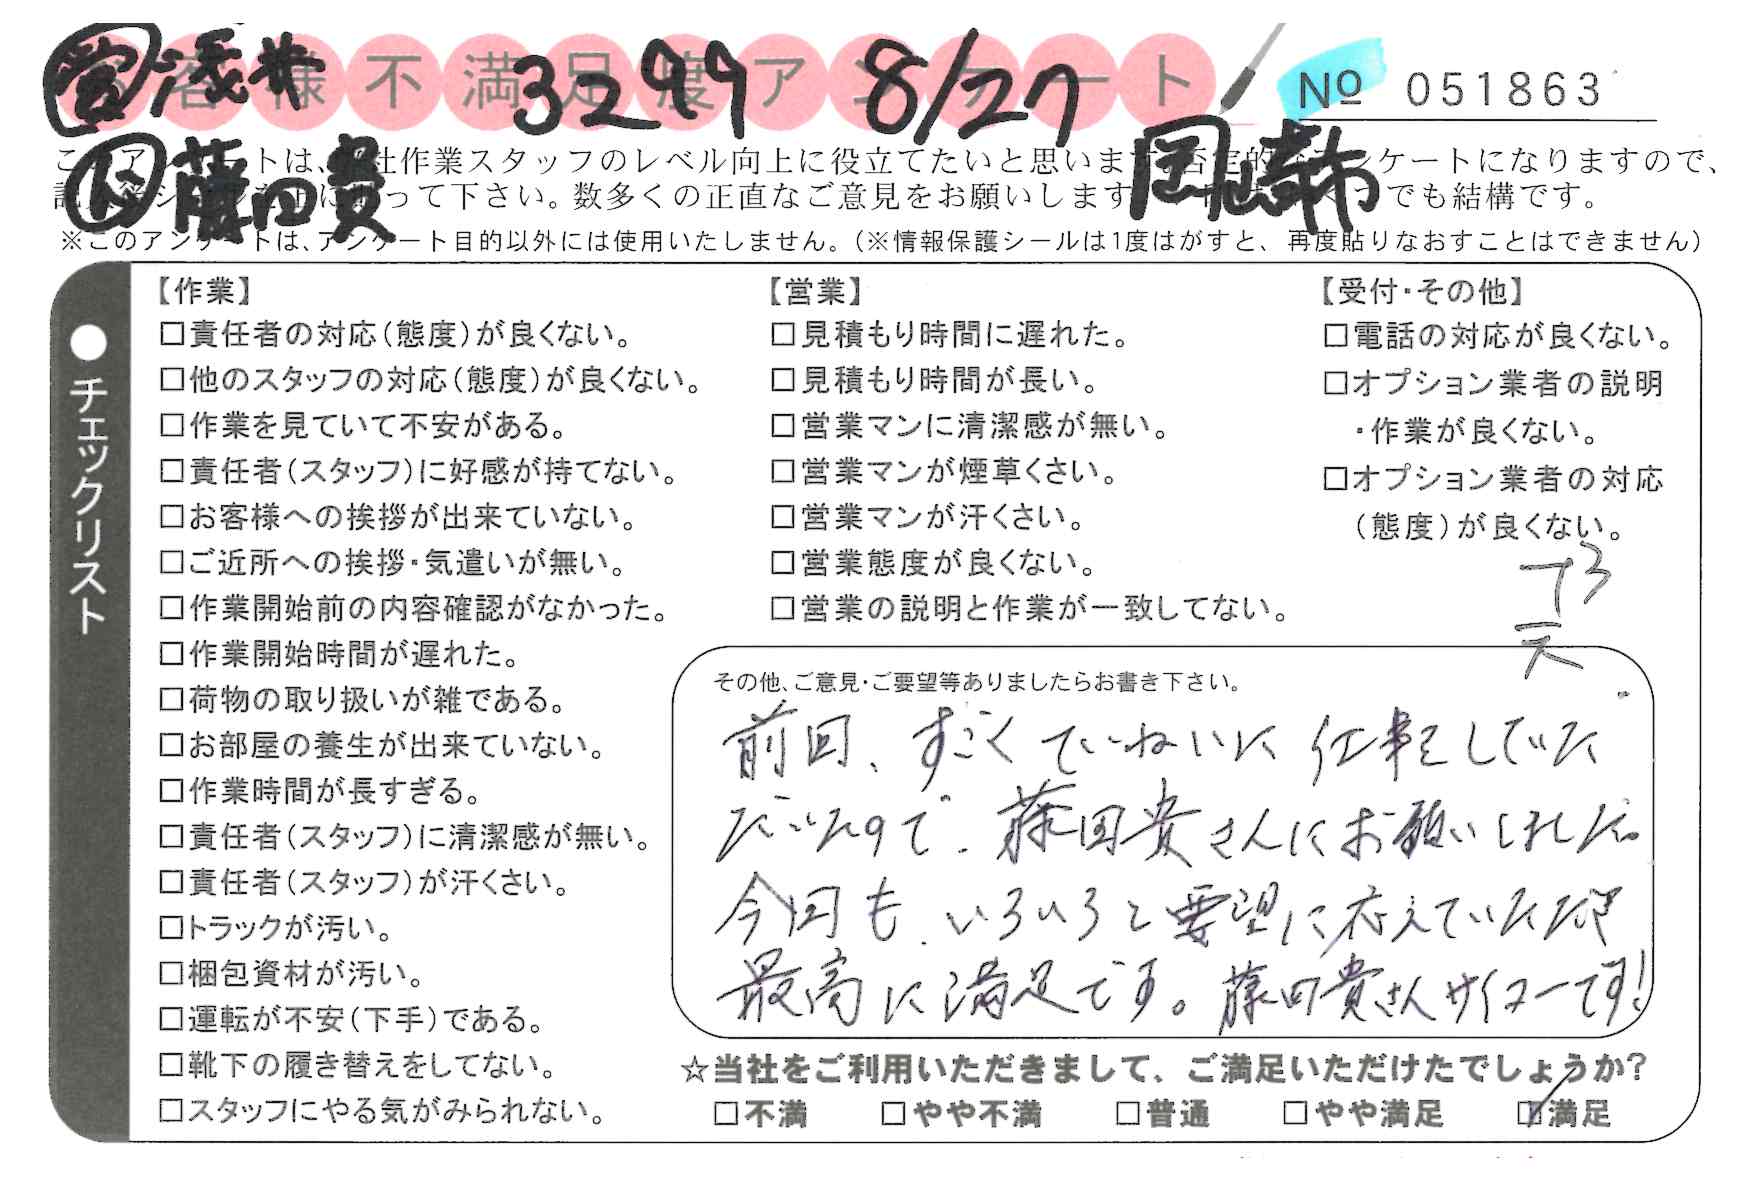 お客様不満足度アンケート
営 浅井 3299 8/27
No 051863
ト 藤田貴 岡崎市
このアンケートは、当社作業スタッフのレベル向上に役立てたいと思います。否定的なアンケートになりますので、
って下さい。数多くの正直なご意見をお願いします でも結構です。
※このアンケートは、アンケート目的以外には使用いたしません。(※情報保護シールは1度はがすと、再度貼りなおすことはできません)
●チェックリスト
【作業】
□責任者の対応(態度)が良くない。
□他のスタッフの対応(態度)が良くない。
□作業を見ていて不安がある。
□責任者(スタッフ)に好感が持てない。
□お客様への挨拶が出来ていない。
□ご近所への挨拶・気遣いが無い。
□作業開始前の内容確認がなかった。
□作業開始時間が遅れた。
□荷物の取り扱いが雑である。
□お部屋の養生が出来ていない。
□作業時間が長すぎる。
□責任者(スタッフ)に清潔感が無い。
□責任者(スタッフ)が汗くさい。
□トラックが汚い。
□梱包資材が汚い。
□運転が不安(下手)である。
□靴下の履き替えをしてない。
□スタッフにやる気がみられない。
【営業】
□見積もり時間に遅れた。
□見積もり時間が長い。
□営業マンに清潔感が無い。
□営業マンが煙草くさい。
□営業マンが汗くさい。
□営業態度が良くない。
□営業の説明と作業が一致してない。
【受付・その他】
□電話の対応が良くない。
□オプション業者の説明
・作業が良くない。
□オプション業者の対応
(態度)が良くない。
その他、ご意見・ご要望等ありましたらお書き下さい。
前回、すごくていねいに仕事をしていた
だいたので、藤田貴さんにお願いしました。
今回も、いろいろと要望に応えていただき
最高に満足です。藤田貴さんサイコーです!
☆当社をご利用いただきまして、ご満足いただけたでしょうか?
□不満 □やや不満 □普通 □やや満足 ☑満足